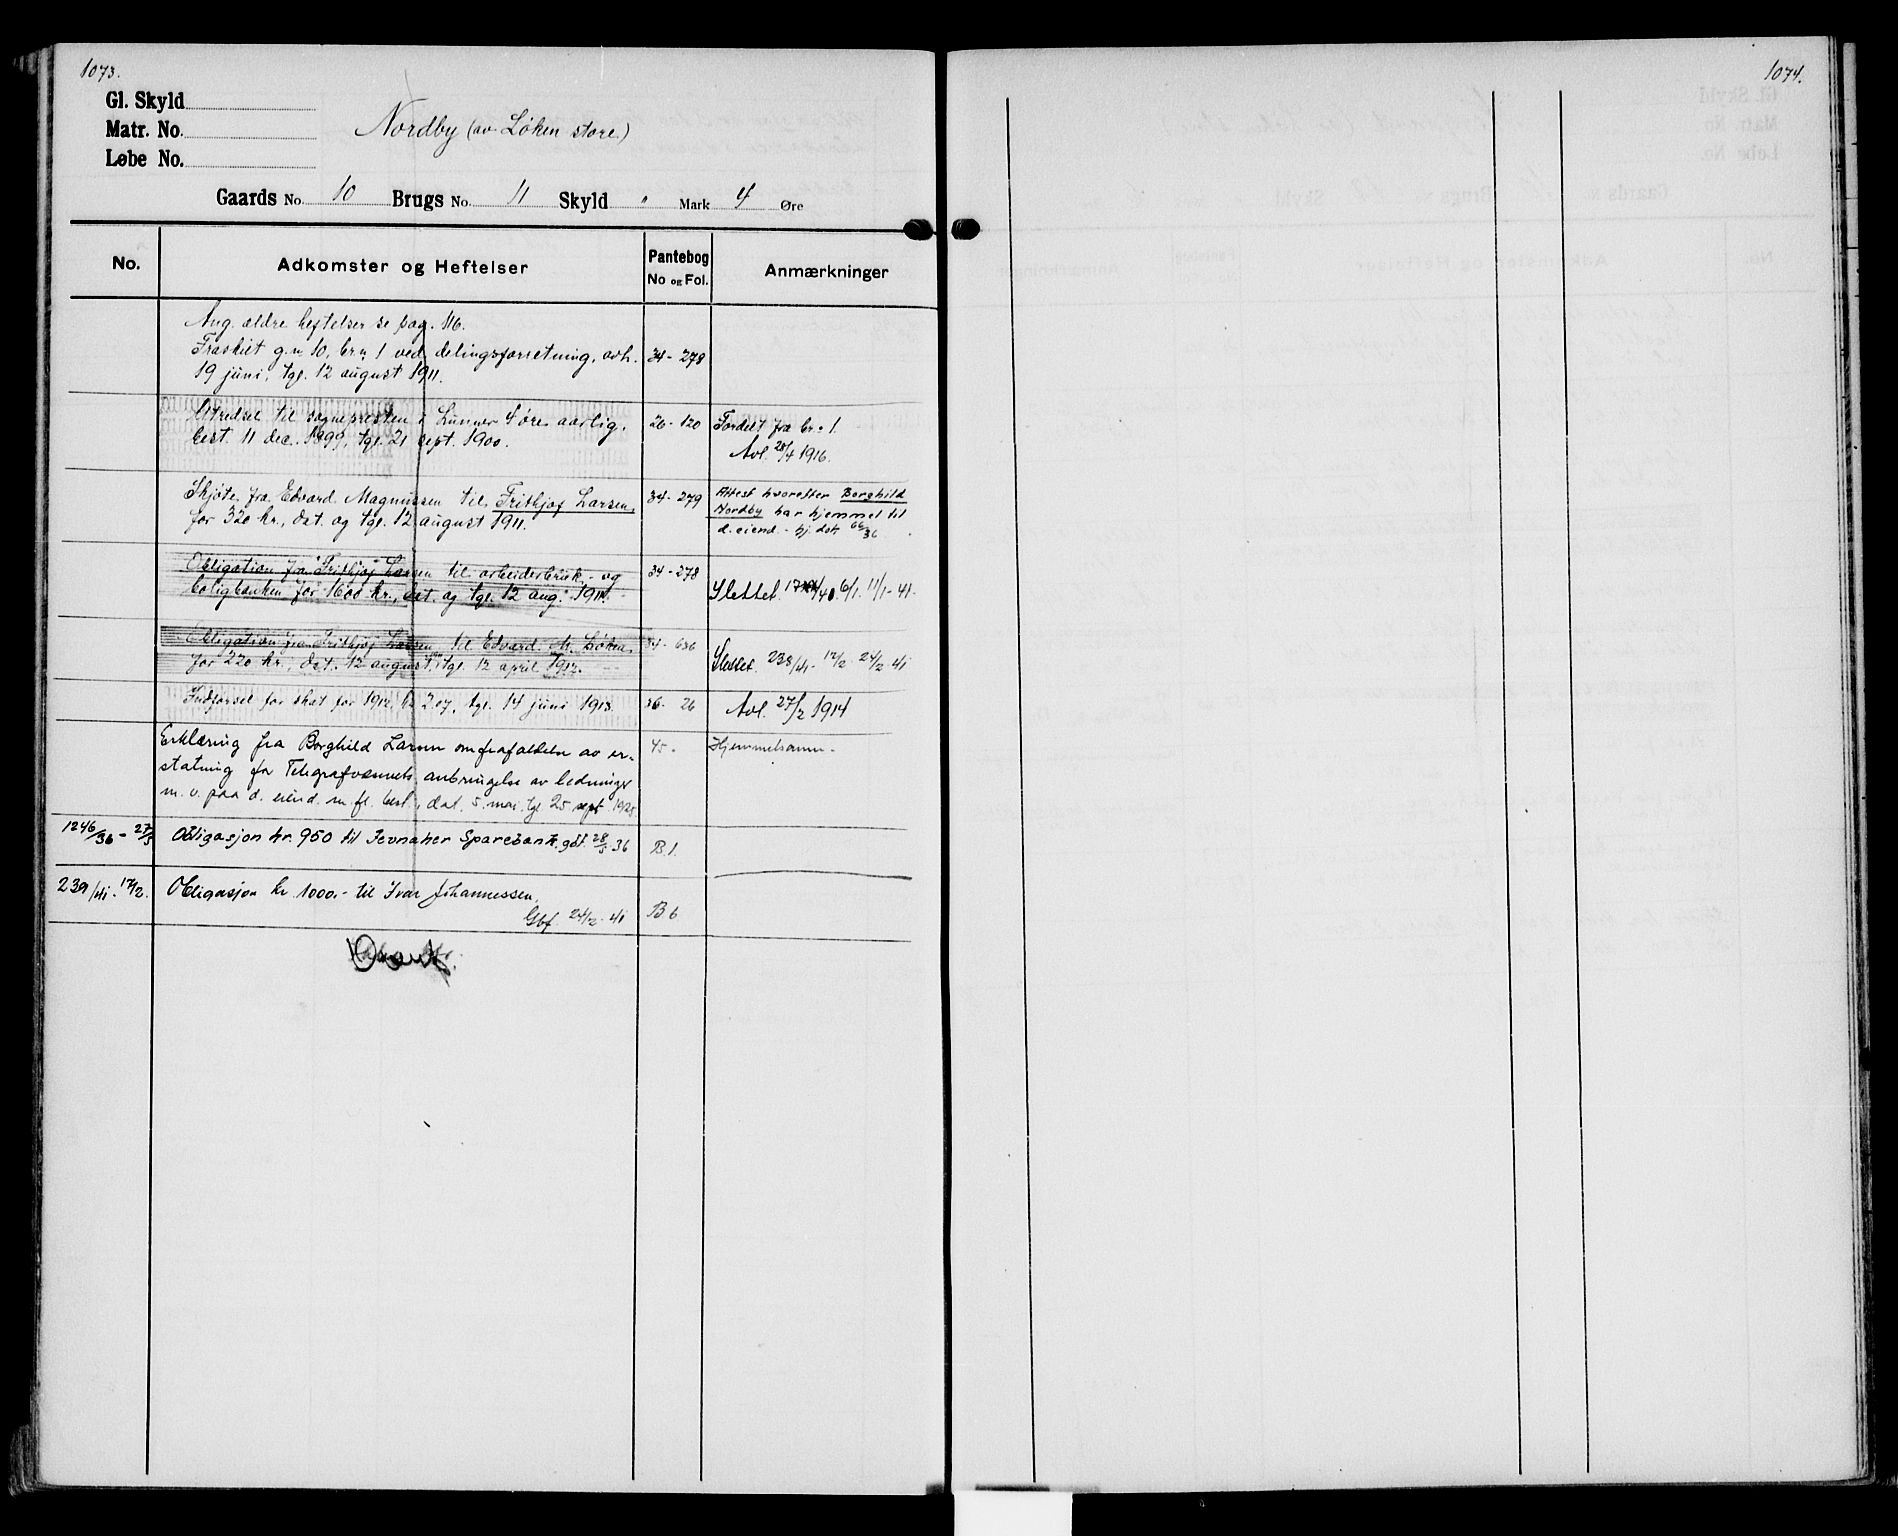 1073.
Gl. Skyld
Matr. No.
Løbe No.
Nordby (av Løken store.)
Gaards No. 10 Brugs No. 11 Skyld " Mark 4 Øre
No. Adkomster og Heftelser Pantebog No og Fol. Anmærkninger
Ang. ældre heftelser se pag. 116.
Fraskilt g.n. 10, br.n. 1 ved delingsforretning, avh. 34 - 278
19 juni, tgl. 12 august 1911.
Utredsel til sognepresten i Lunner 4 øre aarlig, 26 - 120 Fordelt fra br.n. 1.
best. 11 dec. 1899, tgl. 21 sept. 1900. Avl. 28/4 1916.
Skjøte fra Edvard Magnussen til Frithjof Larsen 34 - 279 Attest hvorefter Borghild
for 320 kr., dat. og tgl. 12 august 1911. Nordby har hjemmel til
d. eiend. - hj. dok 66/36
Obligation fra Frithjof Larsen til arbeiderbruk- og 34 - 278
boligbanken for 1600 kr., dat. og tgl. 12 aug. 1911. Slettet. /40 6/1. 11/1 - 41.
Obligation fra Frithjof Larsen til Edvard M. Løken 34 - 636
for 220 kr., dat. 12 august, tgl. 12 april 1912. Slettet. 238/41 - 17/2 24/2 41
Indførsel for skat for 1912, kr 2.07, tgl. 14 juni 1913. 36 - 26 Avl. 27/2 1914
Erklæring fra Borghild Larsen om frafaldelse av er- 45 - Hjemmelsanm.
statning for Telegrafvæsenets anbringelse av ledninger
m. v. paa d. eiend. m. fl. best., dat. 5. mai, tgl 25 sept 1925
1246/36 - 27/5 Obligasjon kr. 950 til Jevnaker Sparebank. gbf. 28/5 36 B 1.
239/41 - 17/2. Obligasjon kr 1000.- til Ivar Johannessen.
Gbf. 24/2 - 41 B 6
1074.